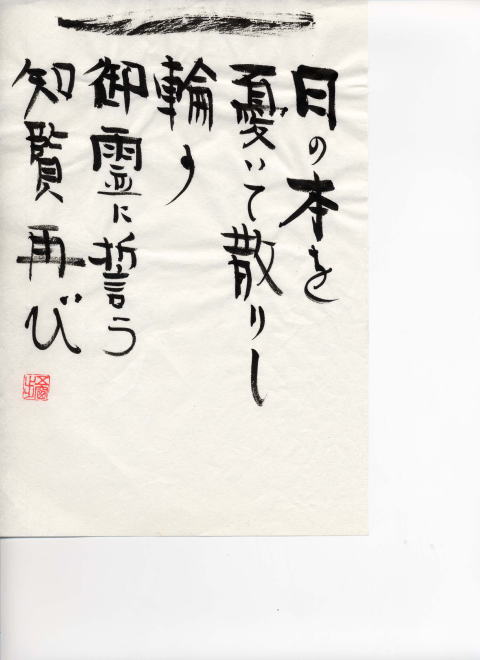 日の本を
憂いて散りし
輪
御霊に誓う
知覧再び